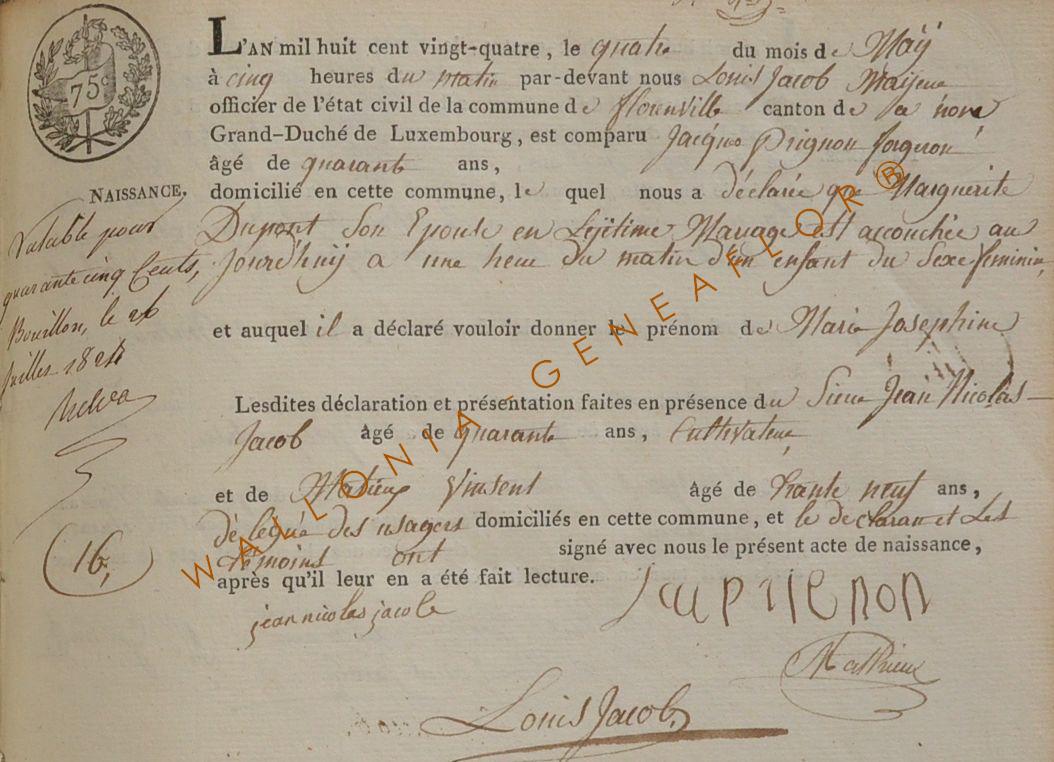 75c
L'AN mil huit cent vingt-quatre, le quatre du mois de Maÿ
à cinq heures du matin par-devant nous Louis Jacob Maijeur
officier de l'état civil de la commune de florenville canton de
Grand-Duché de Luxembourg, est comparu Jacque Prignon forgeron
âgé de quarante ans,
NAISSANCE,
domicilié en cette commune, le quel nous a déclarée que Marguerite
Dupont Son Epouse en Lejitime Mariage est accouchée au
jourdhuÿ a une heur du matin d'un enfant du Sexe feminin,
et auquel il a déclaré vouloir donner le prénom de Marie Josephine
Lesdites déclaration et présentation faites en présence du Sieur Jean Nicolas
Jacob âgé de quarante ans, Cultivateur
et de Matieu Vinsent âgé de trante neuf ans,
délegué des usagers domiciliés en cette commune, et le declarant et Les
témoins ont signé avec nous le présent acte de naissance,
après qu'il leur en a été fait lecture.
jean nicolas jacob
Mathieu
Louis Jacob
Valable pour
quarante cinq Cents,
Bouillon, le 26
juillet 1824
16,
WALLONIA-GENEAFLOR®